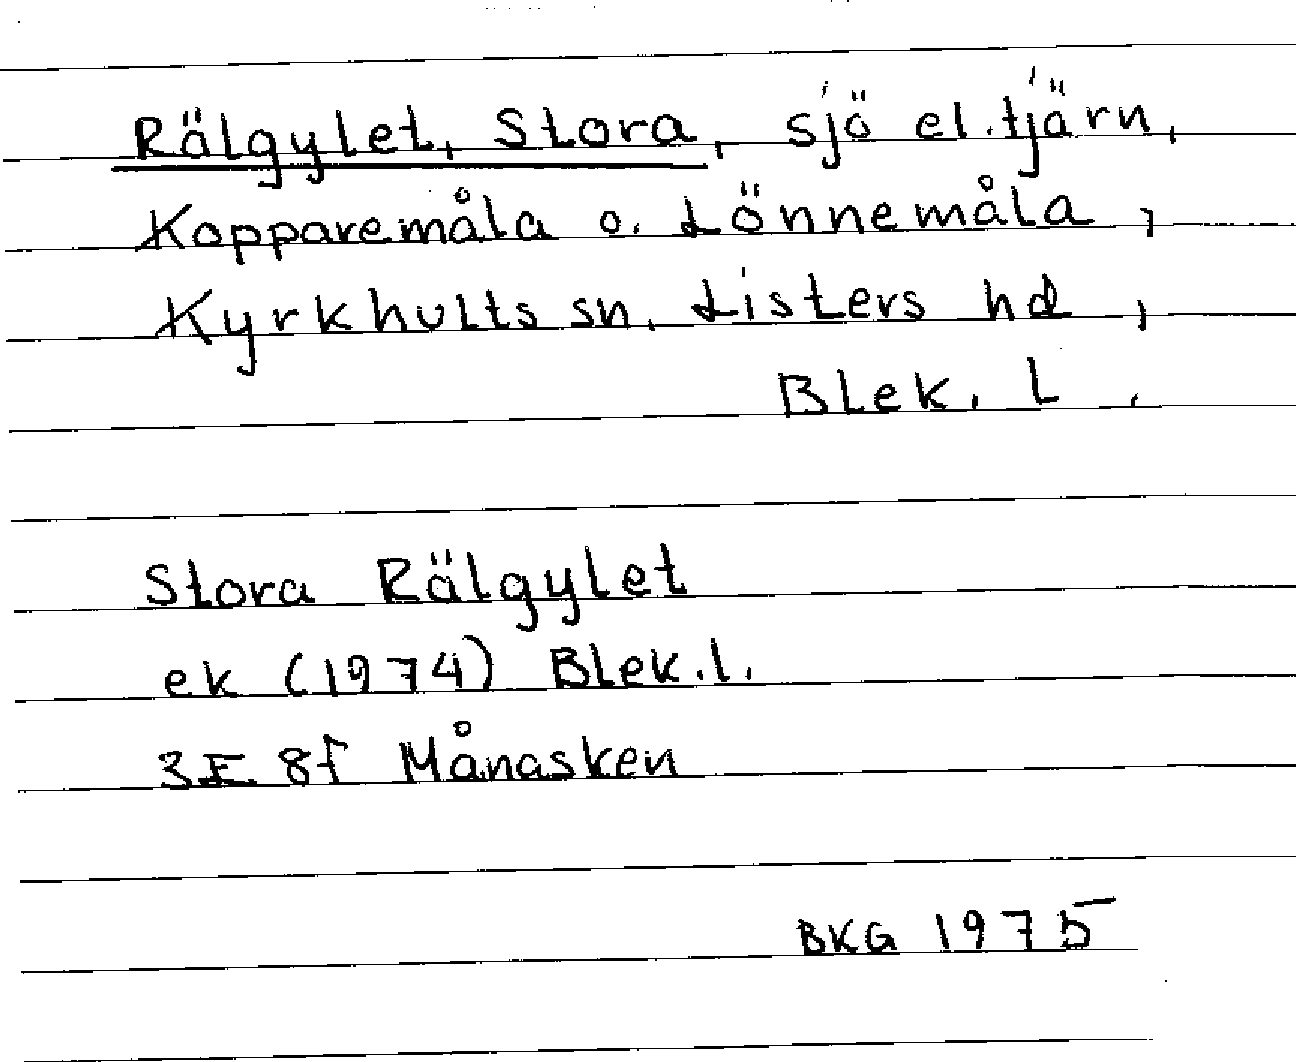 Rälgylet, Stora, sjö el. tjärn,
Kopparemåla o. Lönnemåla,
Kyrkhults sn. Listers hd,
Blek. L.
Stora Rälgylet
ek (1974) Blek. l.
3E 8f Månasken
BKG 1975